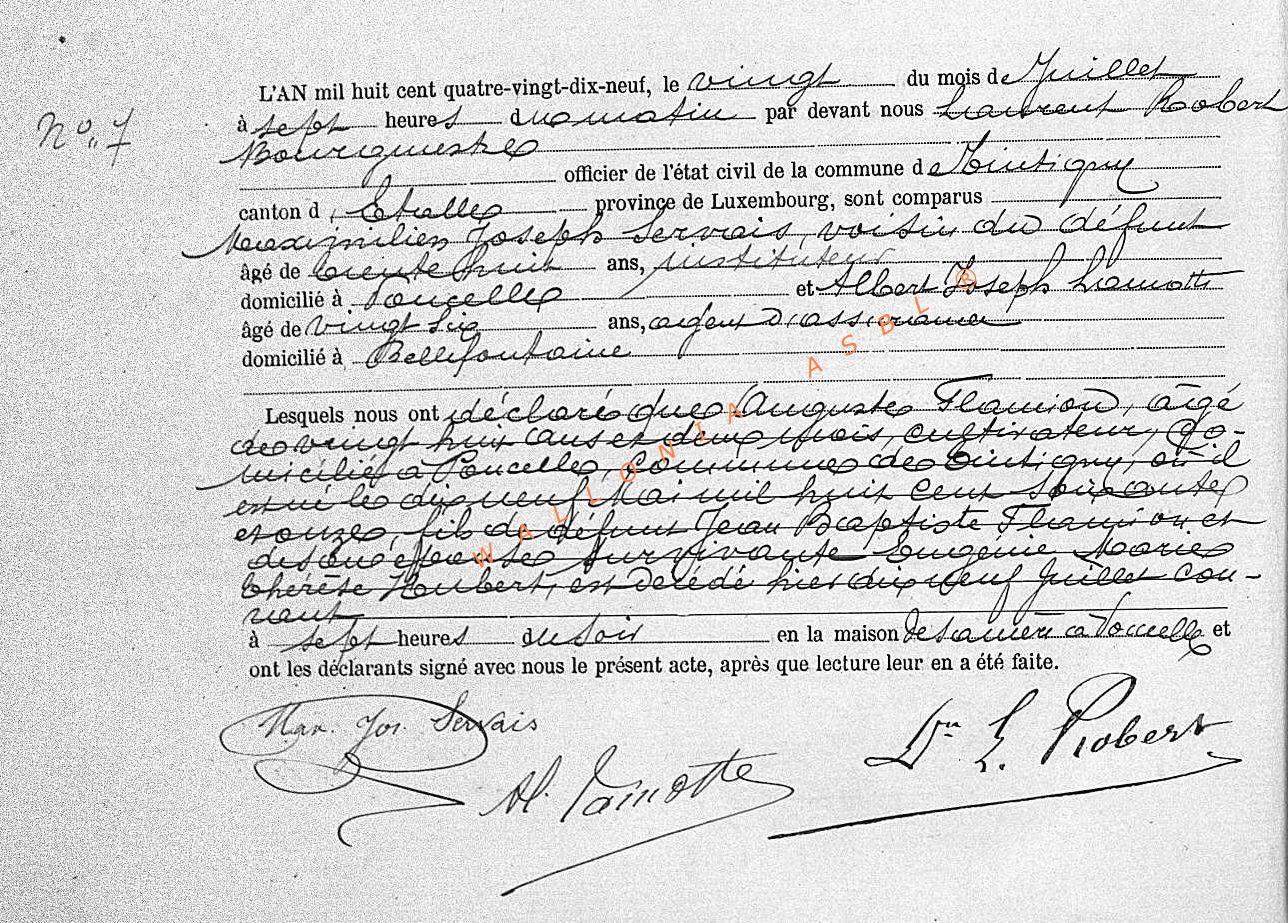 N° 7
L'AN mil huit cent quatre-vingt-dix-neuf, le vingt du mois de Juillet
à sept heures du matin par devant nous Laurent Robert
Bourgmestre
officier de l'état civil de la commune de Tintigny
canton d'Etalle province de Luxembourg, sont comparus
Maximilien Joseph Servais, voisin du défunt
âgé de trente huit ans, instituteur
domicilié à Poncelle et Albert Joseph Lamotte
âgé de vingt six ans, agent d'assurance
domicilié à Bellefontaine
Lesquels nous ont déclaré que Auguste Flamion, âgé
de vingt huit ans et deux mois, cultivateur, do-
micilié à Poncelle, commune de Tintigny, où il
est né le dix neuf Mai mil huit cent soixante
et onze, fils de défunt Jean Baptiste Flamion et
de son épouse survivante Eugénie Marie
Thérèse Houbert, est décédé hier dix neuf Juillet cou-
rant
à sept heures du soir en la maison de sa mère à Poncelle et
ont les déclarants signé avec nous le présent acte, après que lecture leur en a été faite.
Max. Jos. Servais
Al. Lamotte
Dr L. Robert
WALLONIA ASBL ®